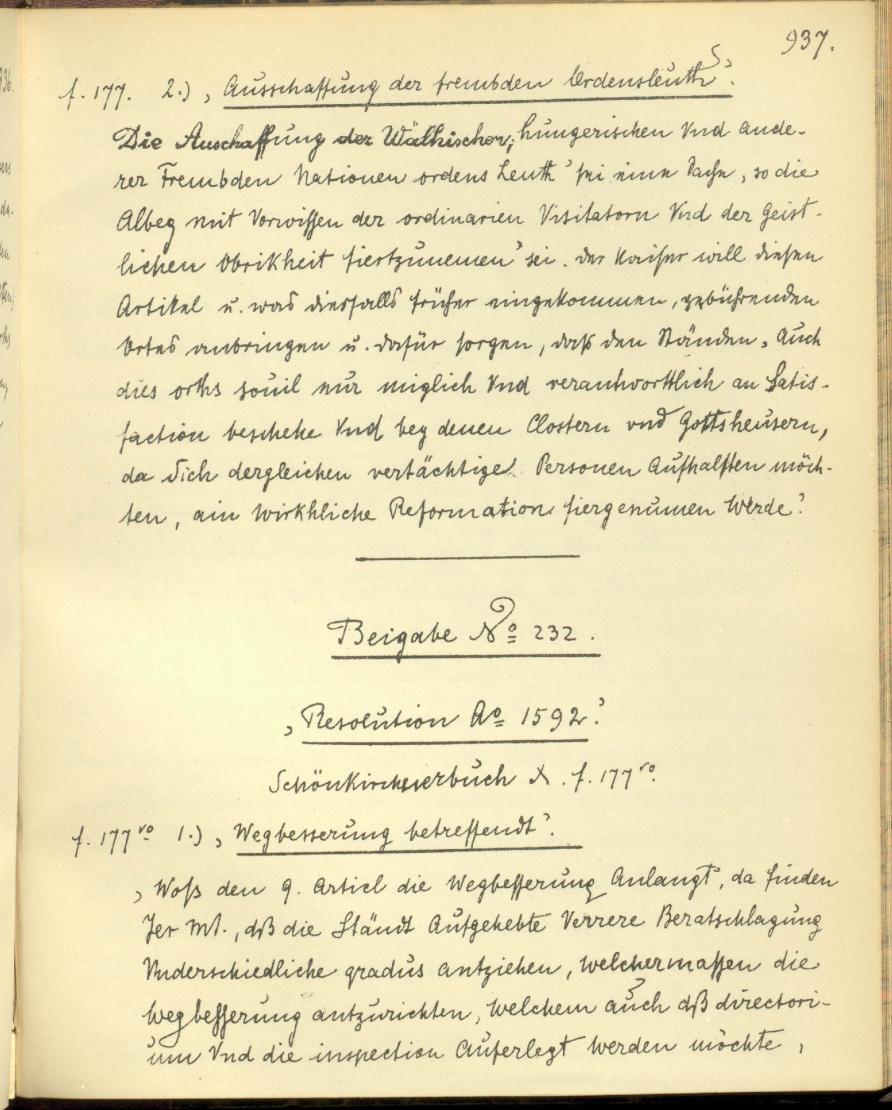 937.
f. 177. 2.) ‚Ausschaffung der frembden Ordensleuth'.
Die Auschaffung der Wälhischer, hungerischen Vnd ande-
rer Frembden Nationen ordens Leuth' sei eine Sache, so die
Albeg mit Vorwissen der ordinarien Visitatorn Vnd der Geist-
lichen Obrikheit fiertzunemen' sei. Der Kaiser will diesen
Artikel u. was diesfalls früher eingekommen, gebührenden
Ortes anbringen u. dafür sorgen, daß den Ständen ‚Auch
dies orths souil nur miglich Vnd verantworttlich an Satis-
faction beschehe Vnd bey denen Clostern vnd Gottsheusern,
da Sich dergleichen vertächtige Personen Aufhalften möch-
ten, ain Wirkhliche Reformation fiergenumen Werde'.
Beigabe No 232.
‚Resolution Ao 1592.'
Schönkircherbuch f. 177vo.
f. 177vo 1.) ‚Wegbesserung betreffendt'.
‚Woß den 9. Articl die Wegbesserung Anlangt, da finden
Jer Mt., dß die Ständt Aufgehebte Verrere Beratschlagung
Vnderschiedliche gradus antziehen, Welchermassen die
Wegbesserung antzurichten, Welchem auch dß directori-
um Vnd die inspection Auferlegt Werden möchte,